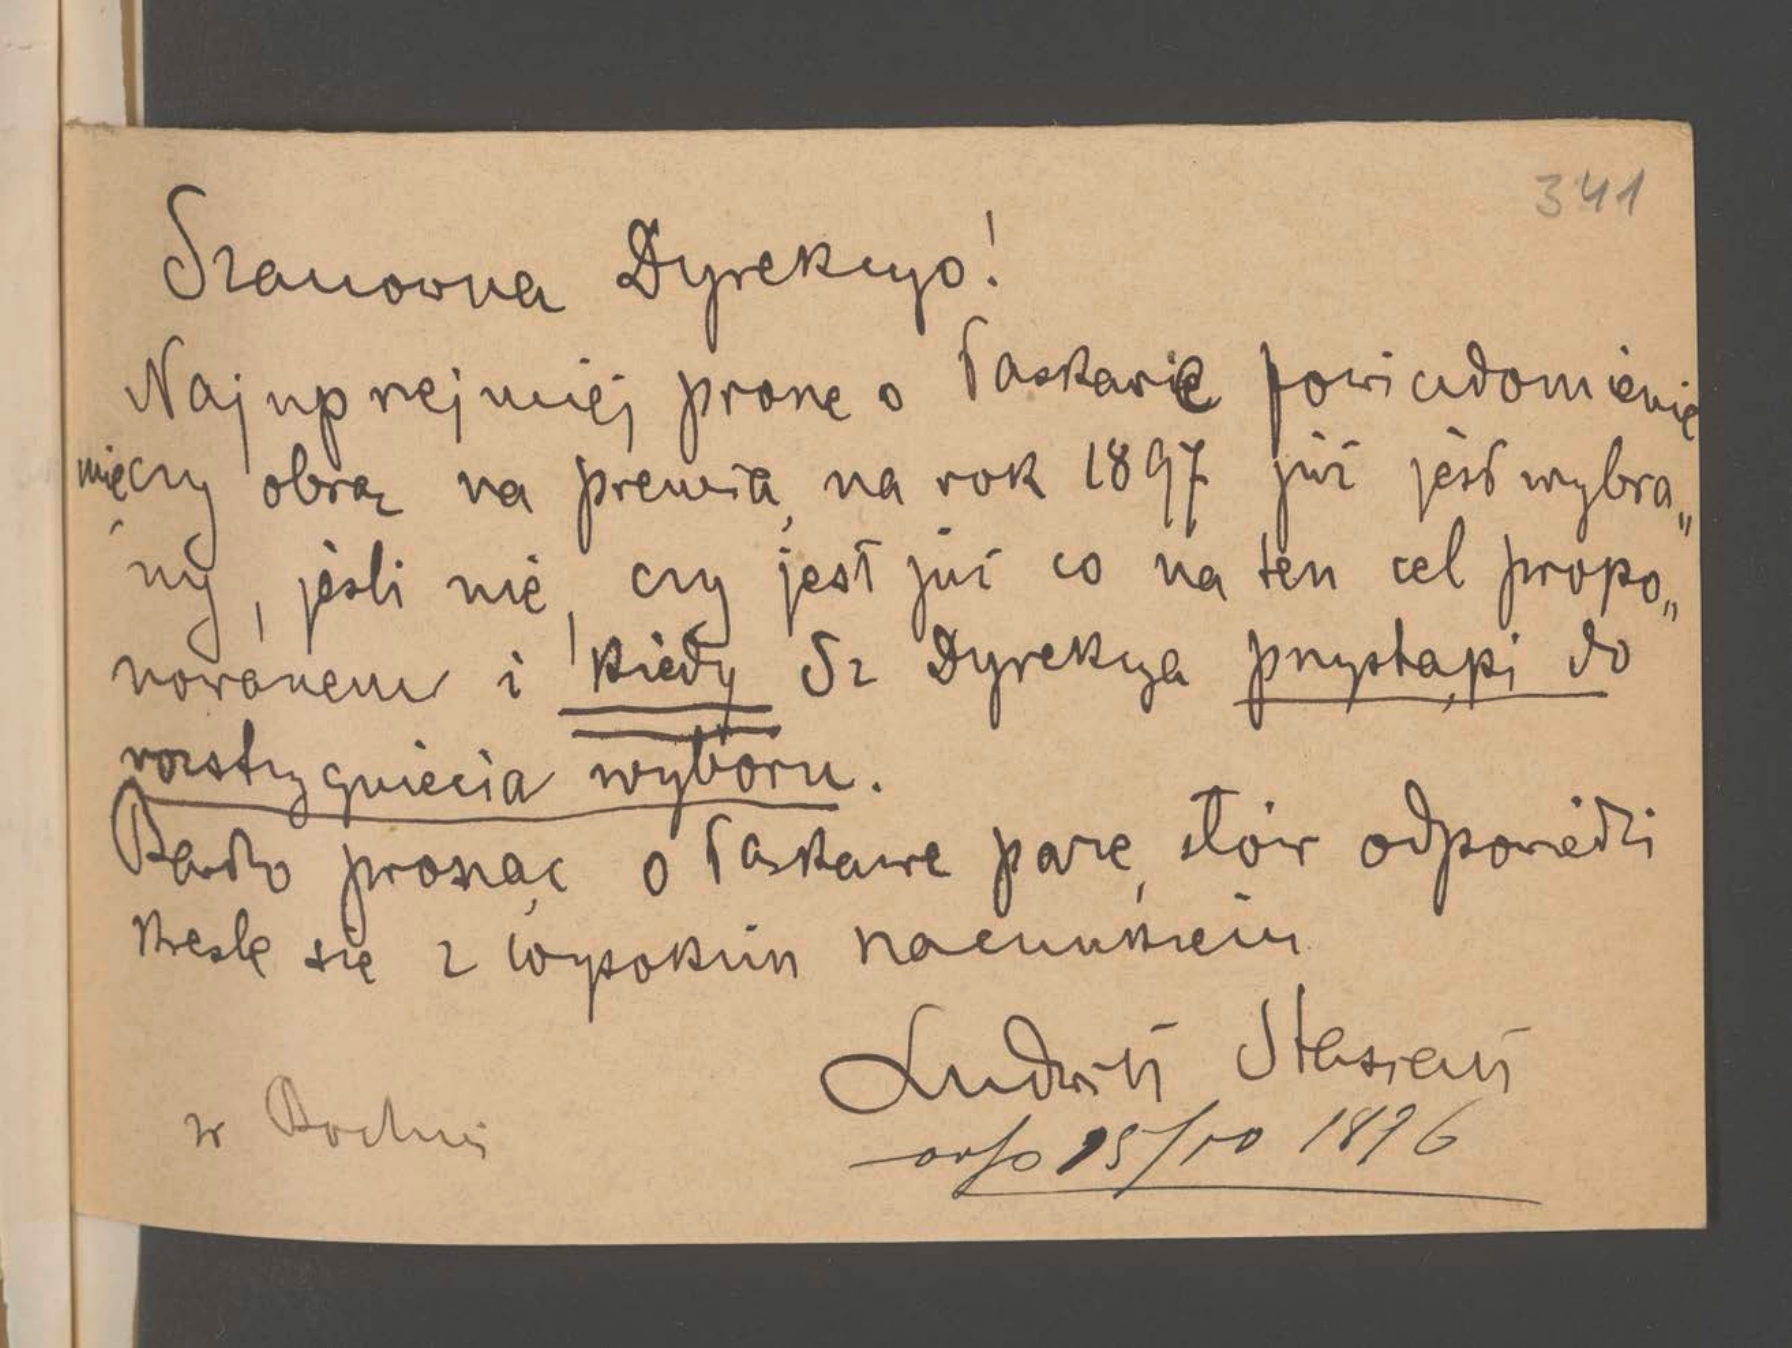 341
Szanowna Dyrekcyo!
Najuprzejmiej proszę o łaskawie powiadomienie
mię czy obraz na premią na rok 1897 już jest wybra„
ny, jeśli nie, czy jest już co na ten cel propo„
nowanem i kiedy Sz Dyrekcya przystąpi do
rozstrzygnięcia wyboru.
Bardzo prosząc o łaskawe parę słów odpowiedzi
kreślę się z wysokim szacunkiem
Ludwik Stasiak
w Bochni
15/10 1896